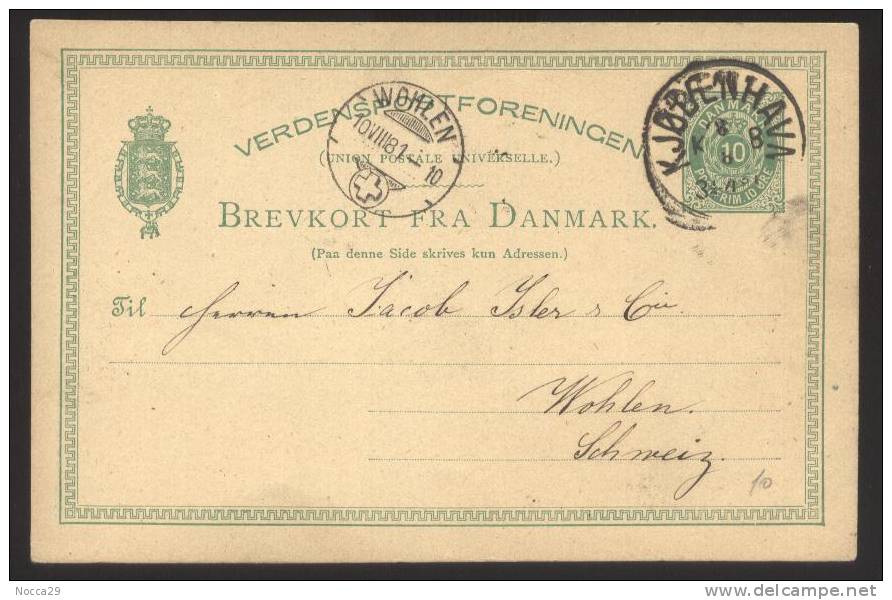 VERDENSPOSTFORENINGEN
(UNION POSTALE UNIVERSELLE.)
WOHLEN
10 VIII 81
10
KJØBENHAVN
8
K B
8
DANMARK
10
POST FRIM. 10 ØRE
BREVKORT FRA DANMARK.
(Paa denne Side skrives kun Adressen.)
Til Herren Jacob Isler & Cie
Wohlen.
Schweiz.
10
Nocca29
delcampe.net